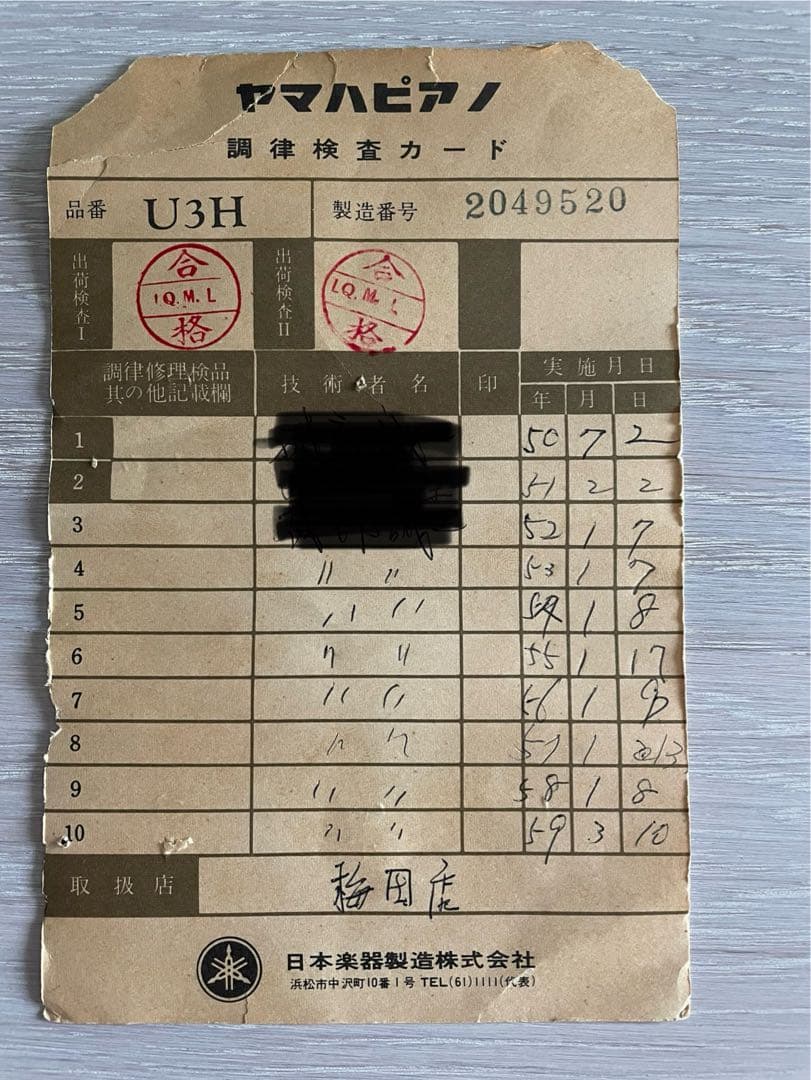 ヤマハピアノ
調律検査カード
品番 U3H 製造番号 2049520
出荷検査I 合 I Q.M.L 格 出荷検査II 合 I Q.M.L 格
調律修理検品其の他記載欄 技術者名 印 実施月日
年 月 日
1 50 7 2
2 51 2 2
3 52 1 7
4 〃 〃 53 1 7
5 〃 〃 54 1 8
6 〃 〃 55 1 17
7 〃 〃 56 1 9
8 〃 〃 57 1 13
9 〃 〃 58 1 8
10 〃 〃 59 3 10
取扱店 梅田店
日本楽器製造株式会社
浜松市中沢町10番1号 TEL(61)1111(代表)